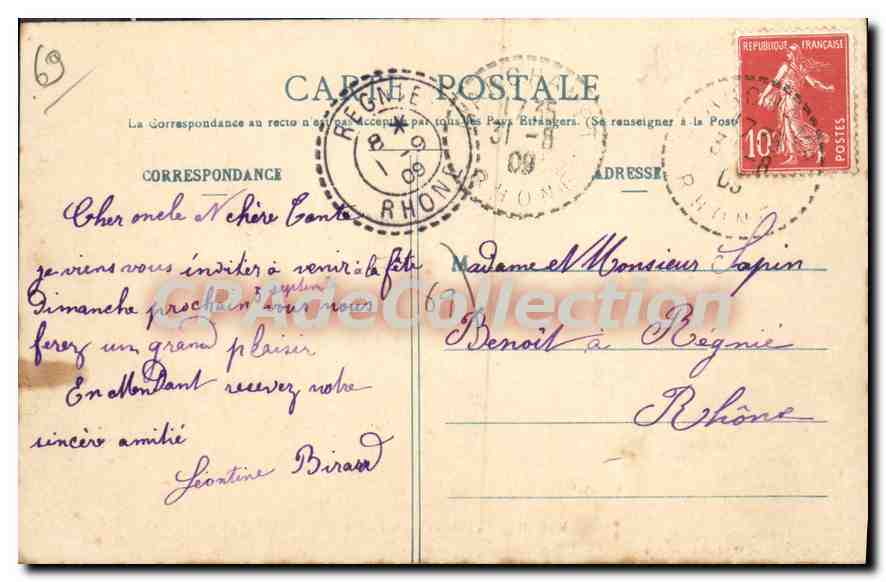 69
CARTE POSTALE
La Correspondance au recto n'est pas acceptée par tous les Pays Étrangers. (Se renseigner à la Poste
CORRESPONDANCE
ADRESSE
REGNIE
8 - 9
1
09
RHONE
31 - 8
09
RHONE
RHONE
REPUBLIQUE FRANÇAISE
10c
POSTES
Cher oncle et chère Tante
je viens vous inviter à venir à la fête
Dimanche prochain 5 septem vous nous
ferez un grand plaisir
En attendant recevez notre
sincère amitié
Léontine Birard
69
Madame et Monsieur Sapin
Benoît à Régnié
Rhône
CPAdeCollection